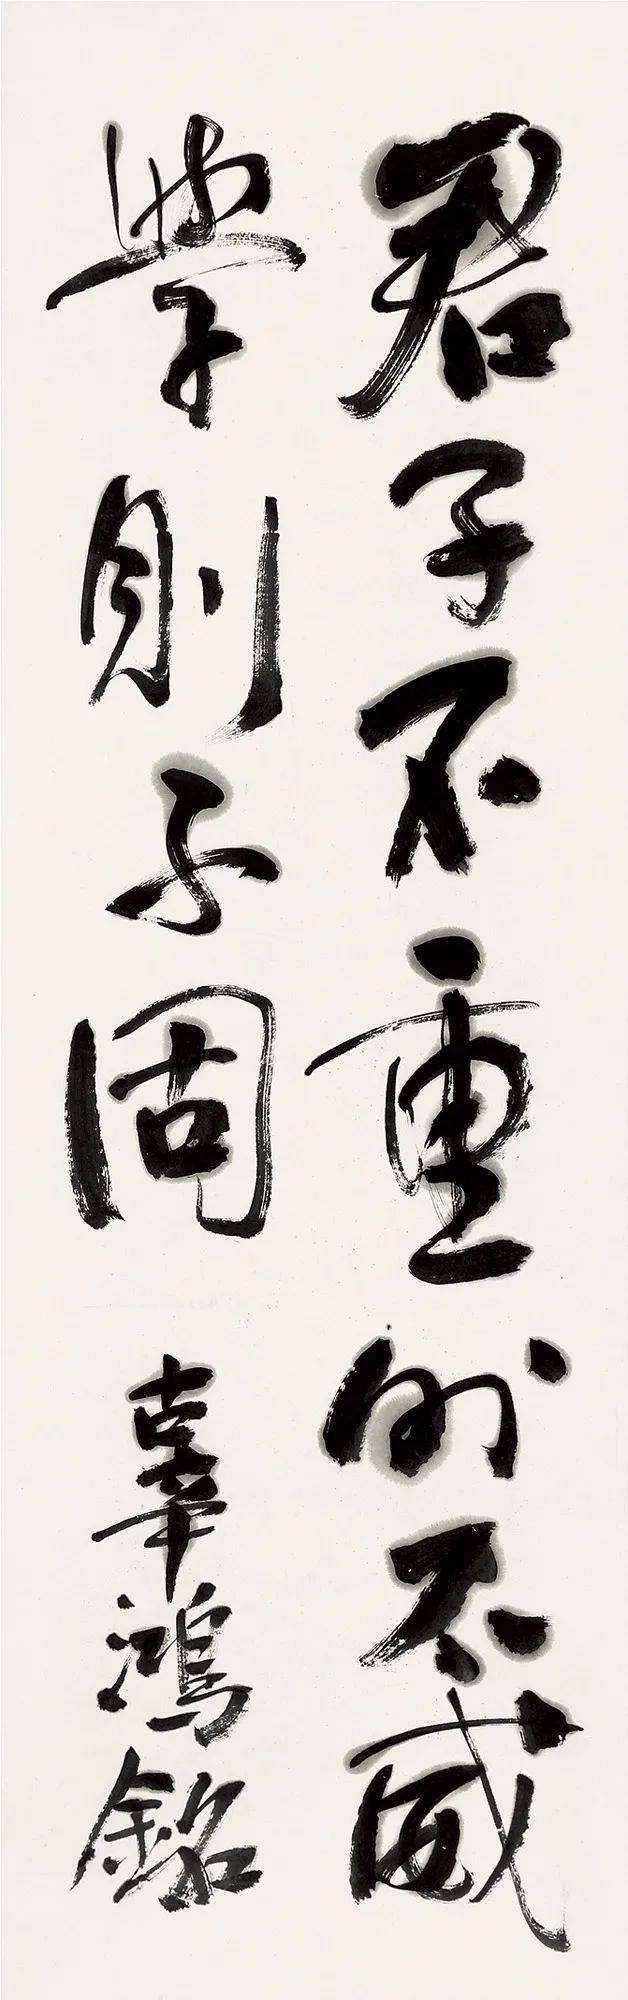 君子不重則不威
學則不固 辜鴻銘